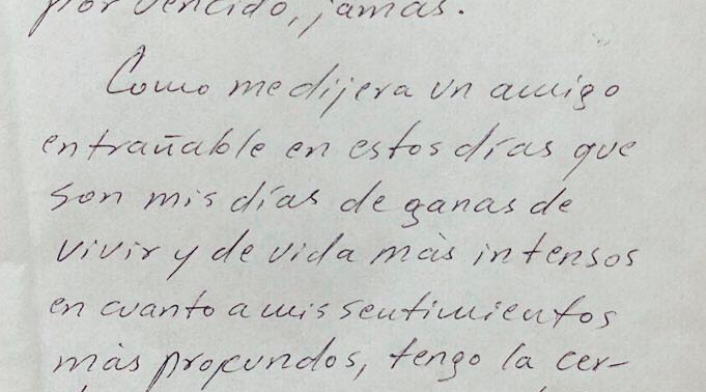 por vencido, jamás.
Como me dijera un amigo
entrañable en estos días que
son mis días de ganas de
vivir y de vida más intensos
en cuanto a mis sentimientos
más profundos, tengo la cer-